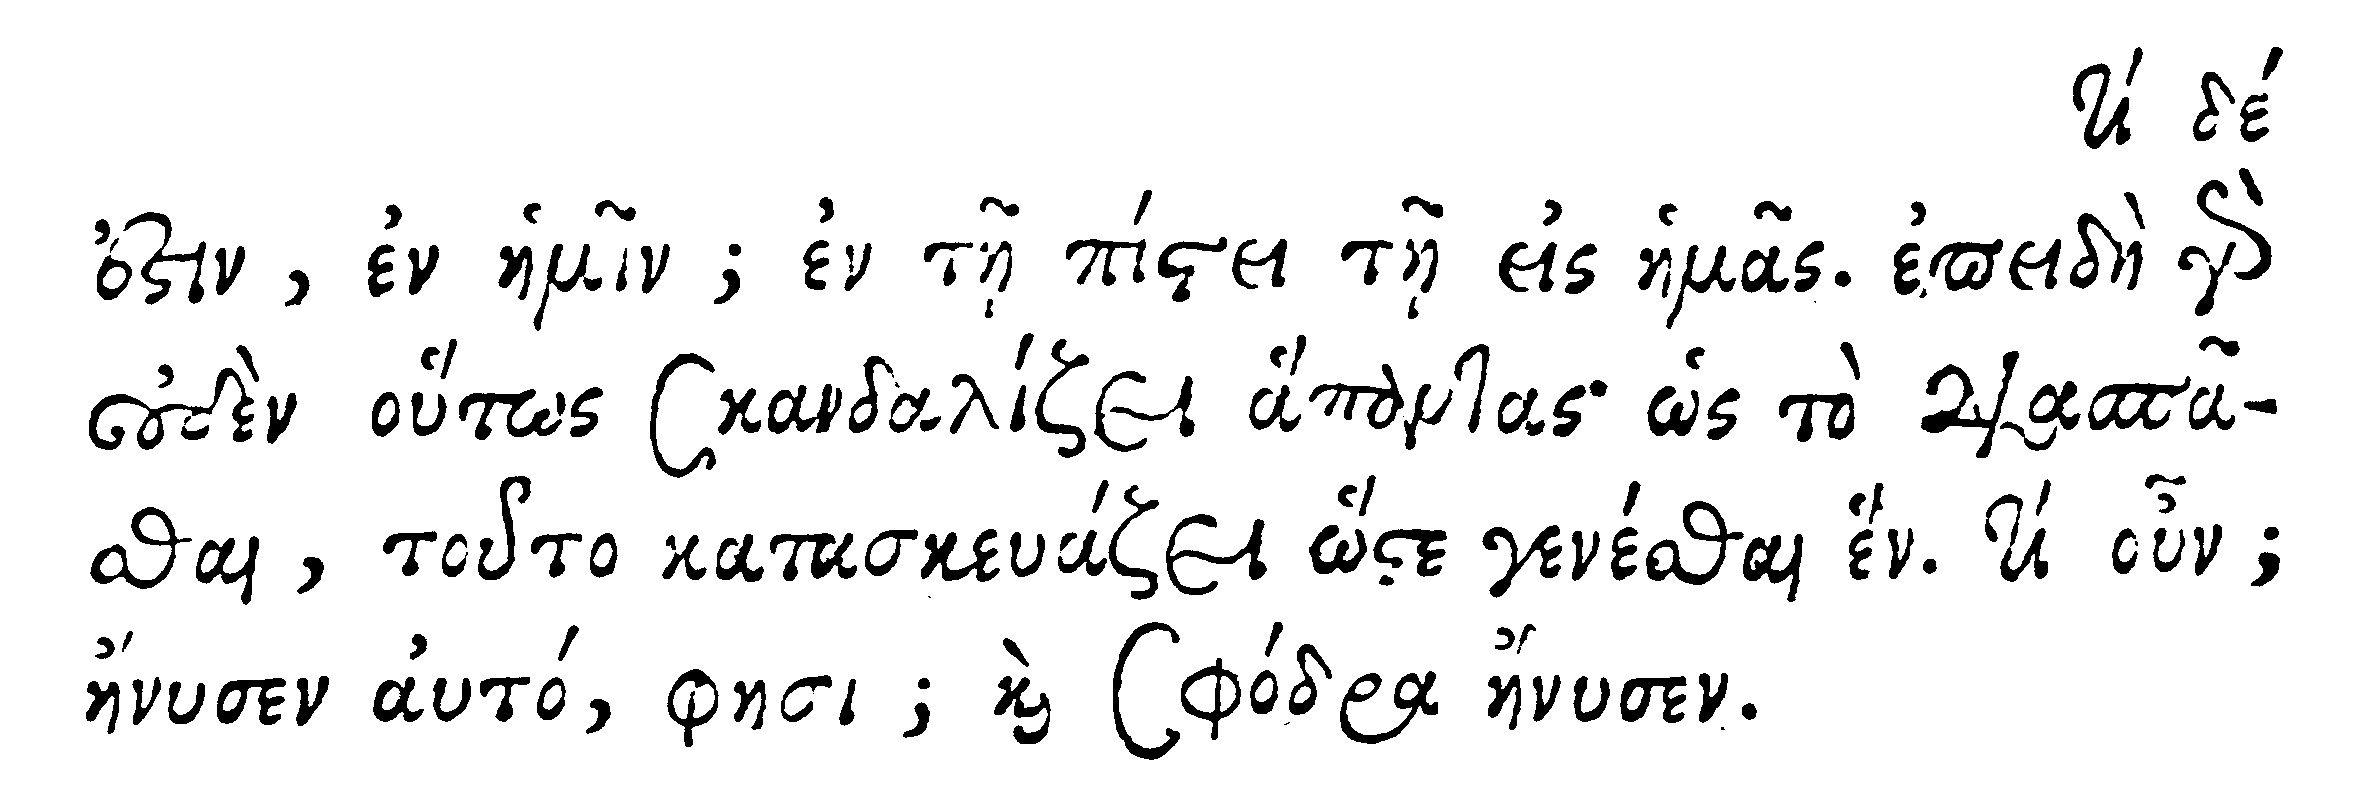 Τί δέ
ὅστιν, ἐν ἡμῖν; ἐν τῇ πίστει τῇ εἰς ἡμᾶς. ἐπειδὴ γὰρ
οὐδὲν οὕτως σκανδαλίζει ἅπαντας· ὡς τὸ διασπᾶ-
σθαι, τοῦτο κατασκευάζει ὥστε γενέσθαι ἕν. Τί οὖν;
ἤνυσεν αὐτό, φησι; καὶ σφόδρα ἤνυσεν.